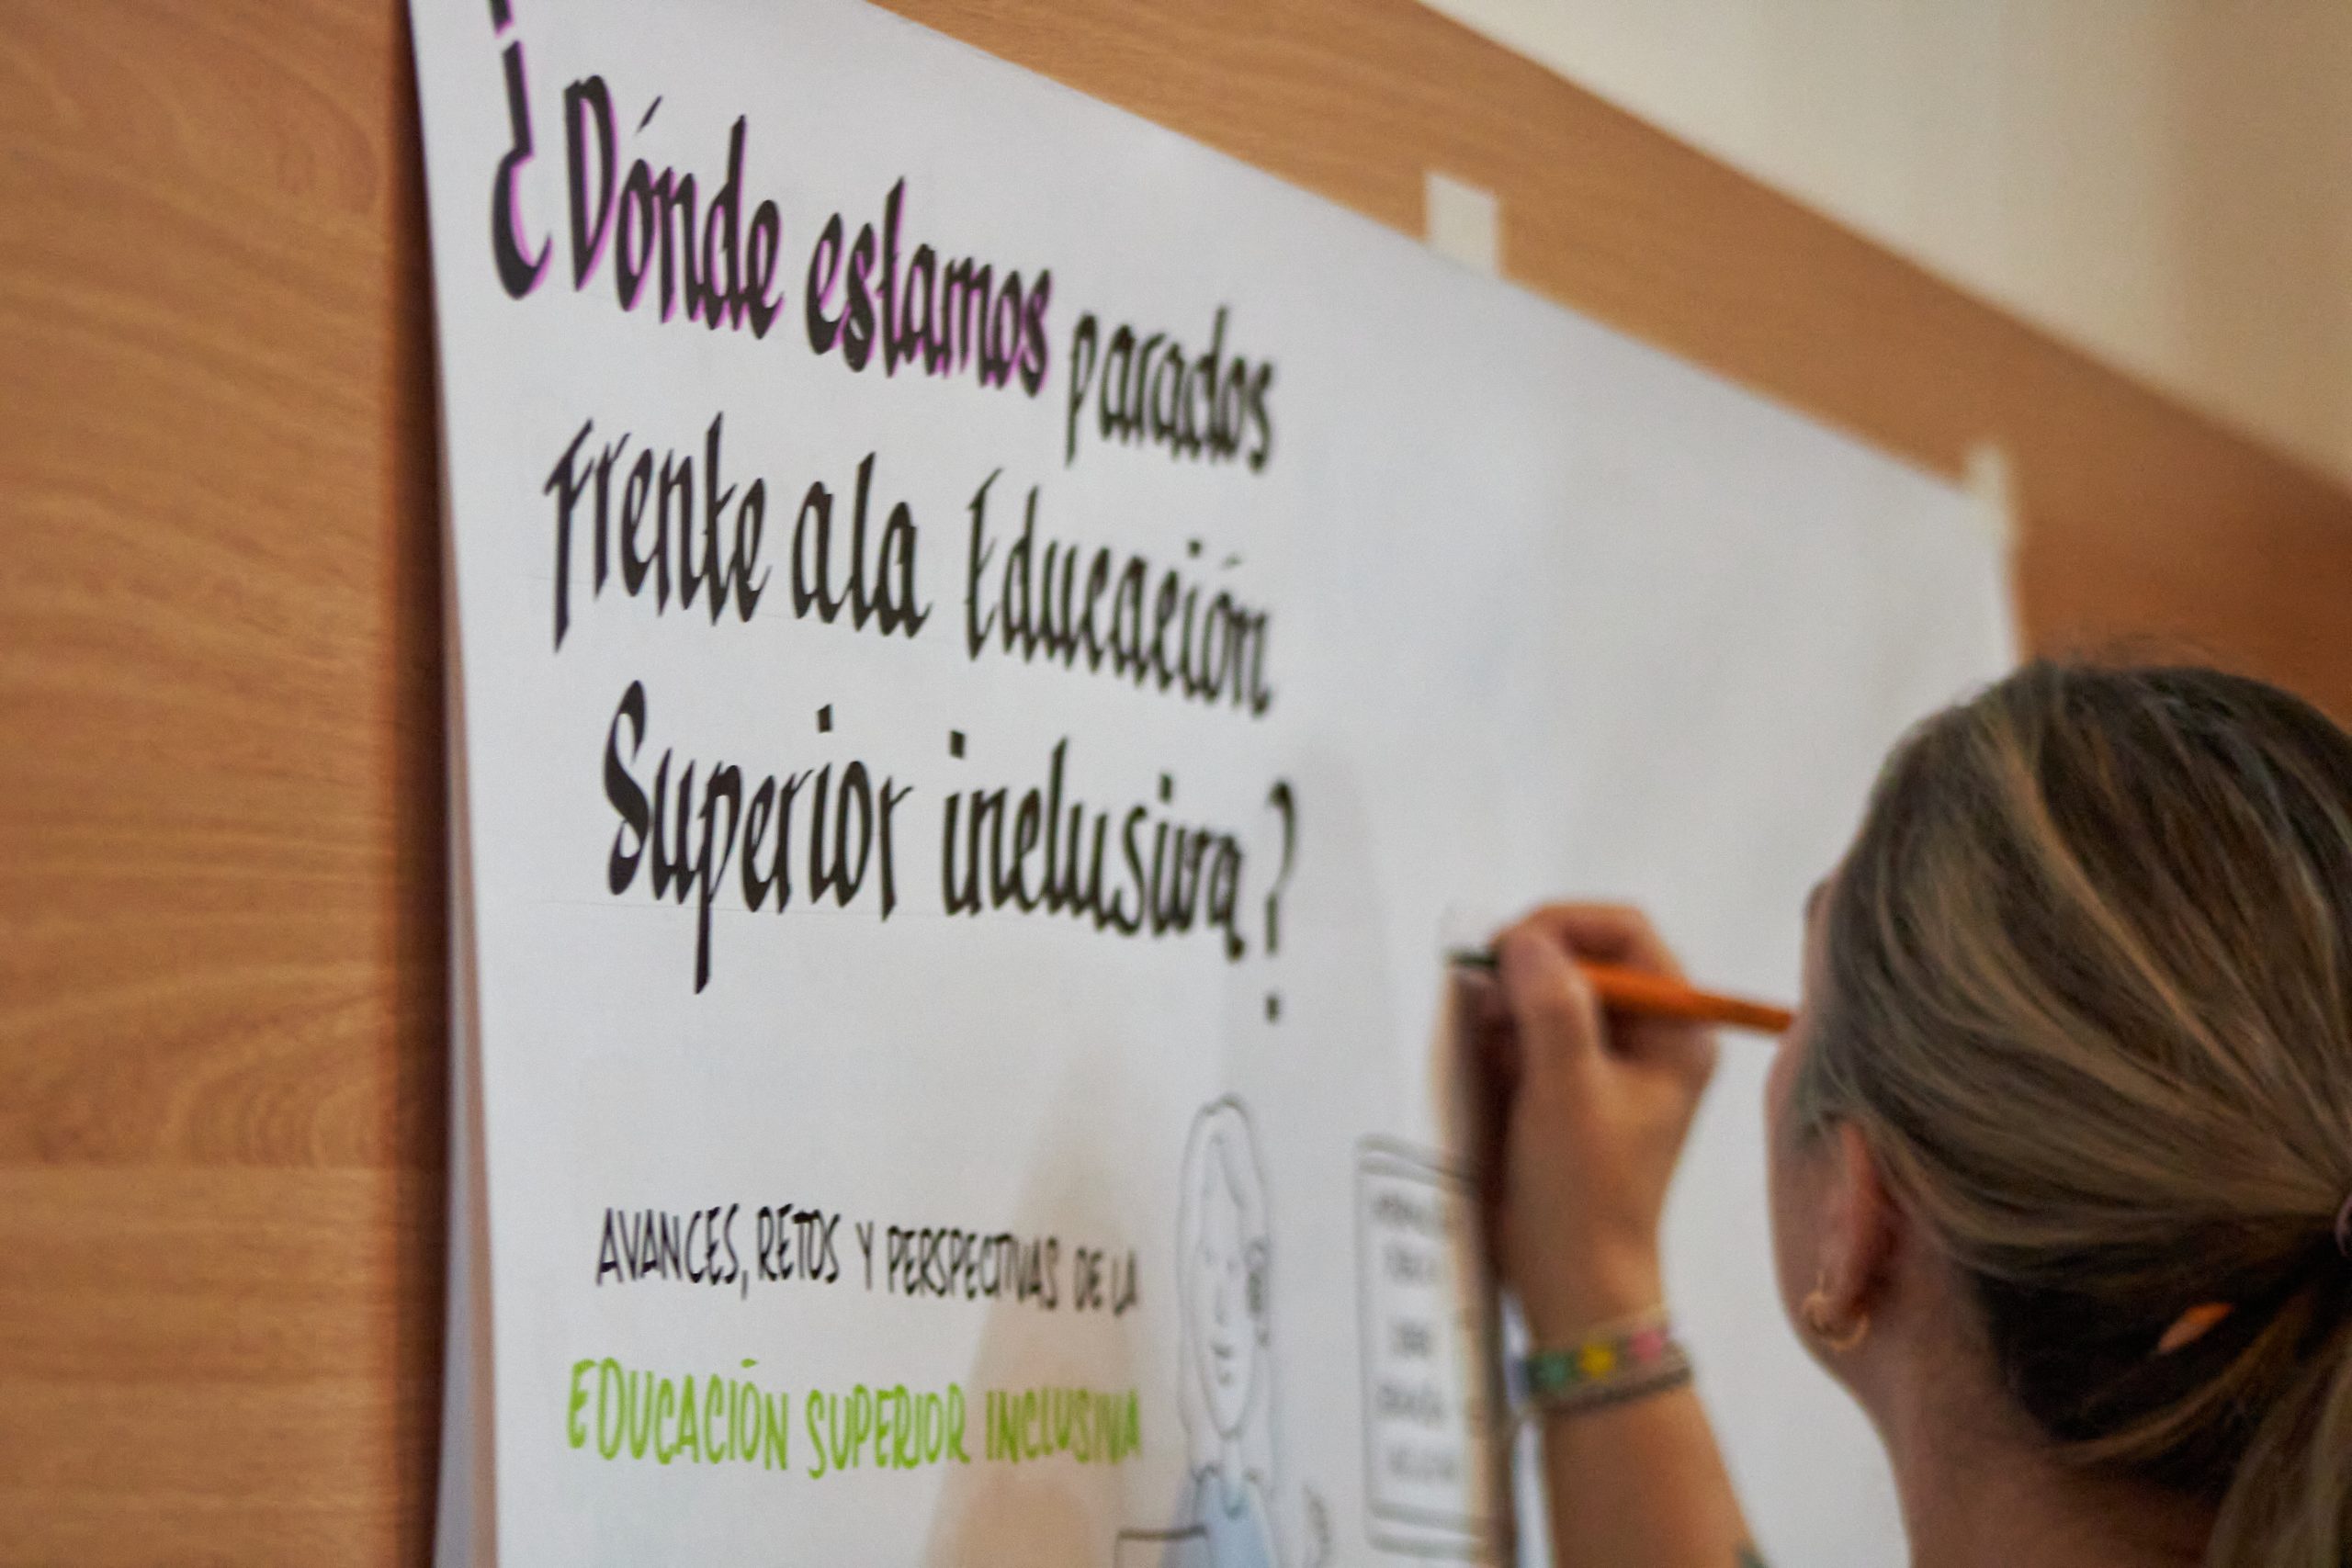 ¿Dónde estamos parados
frente a la Educación
Superior inclusiva?
AVANCES, RETOS Y PERSPECTIVAS DE LA
EDUCACIÓN SUPERIOR INCLUSIVA